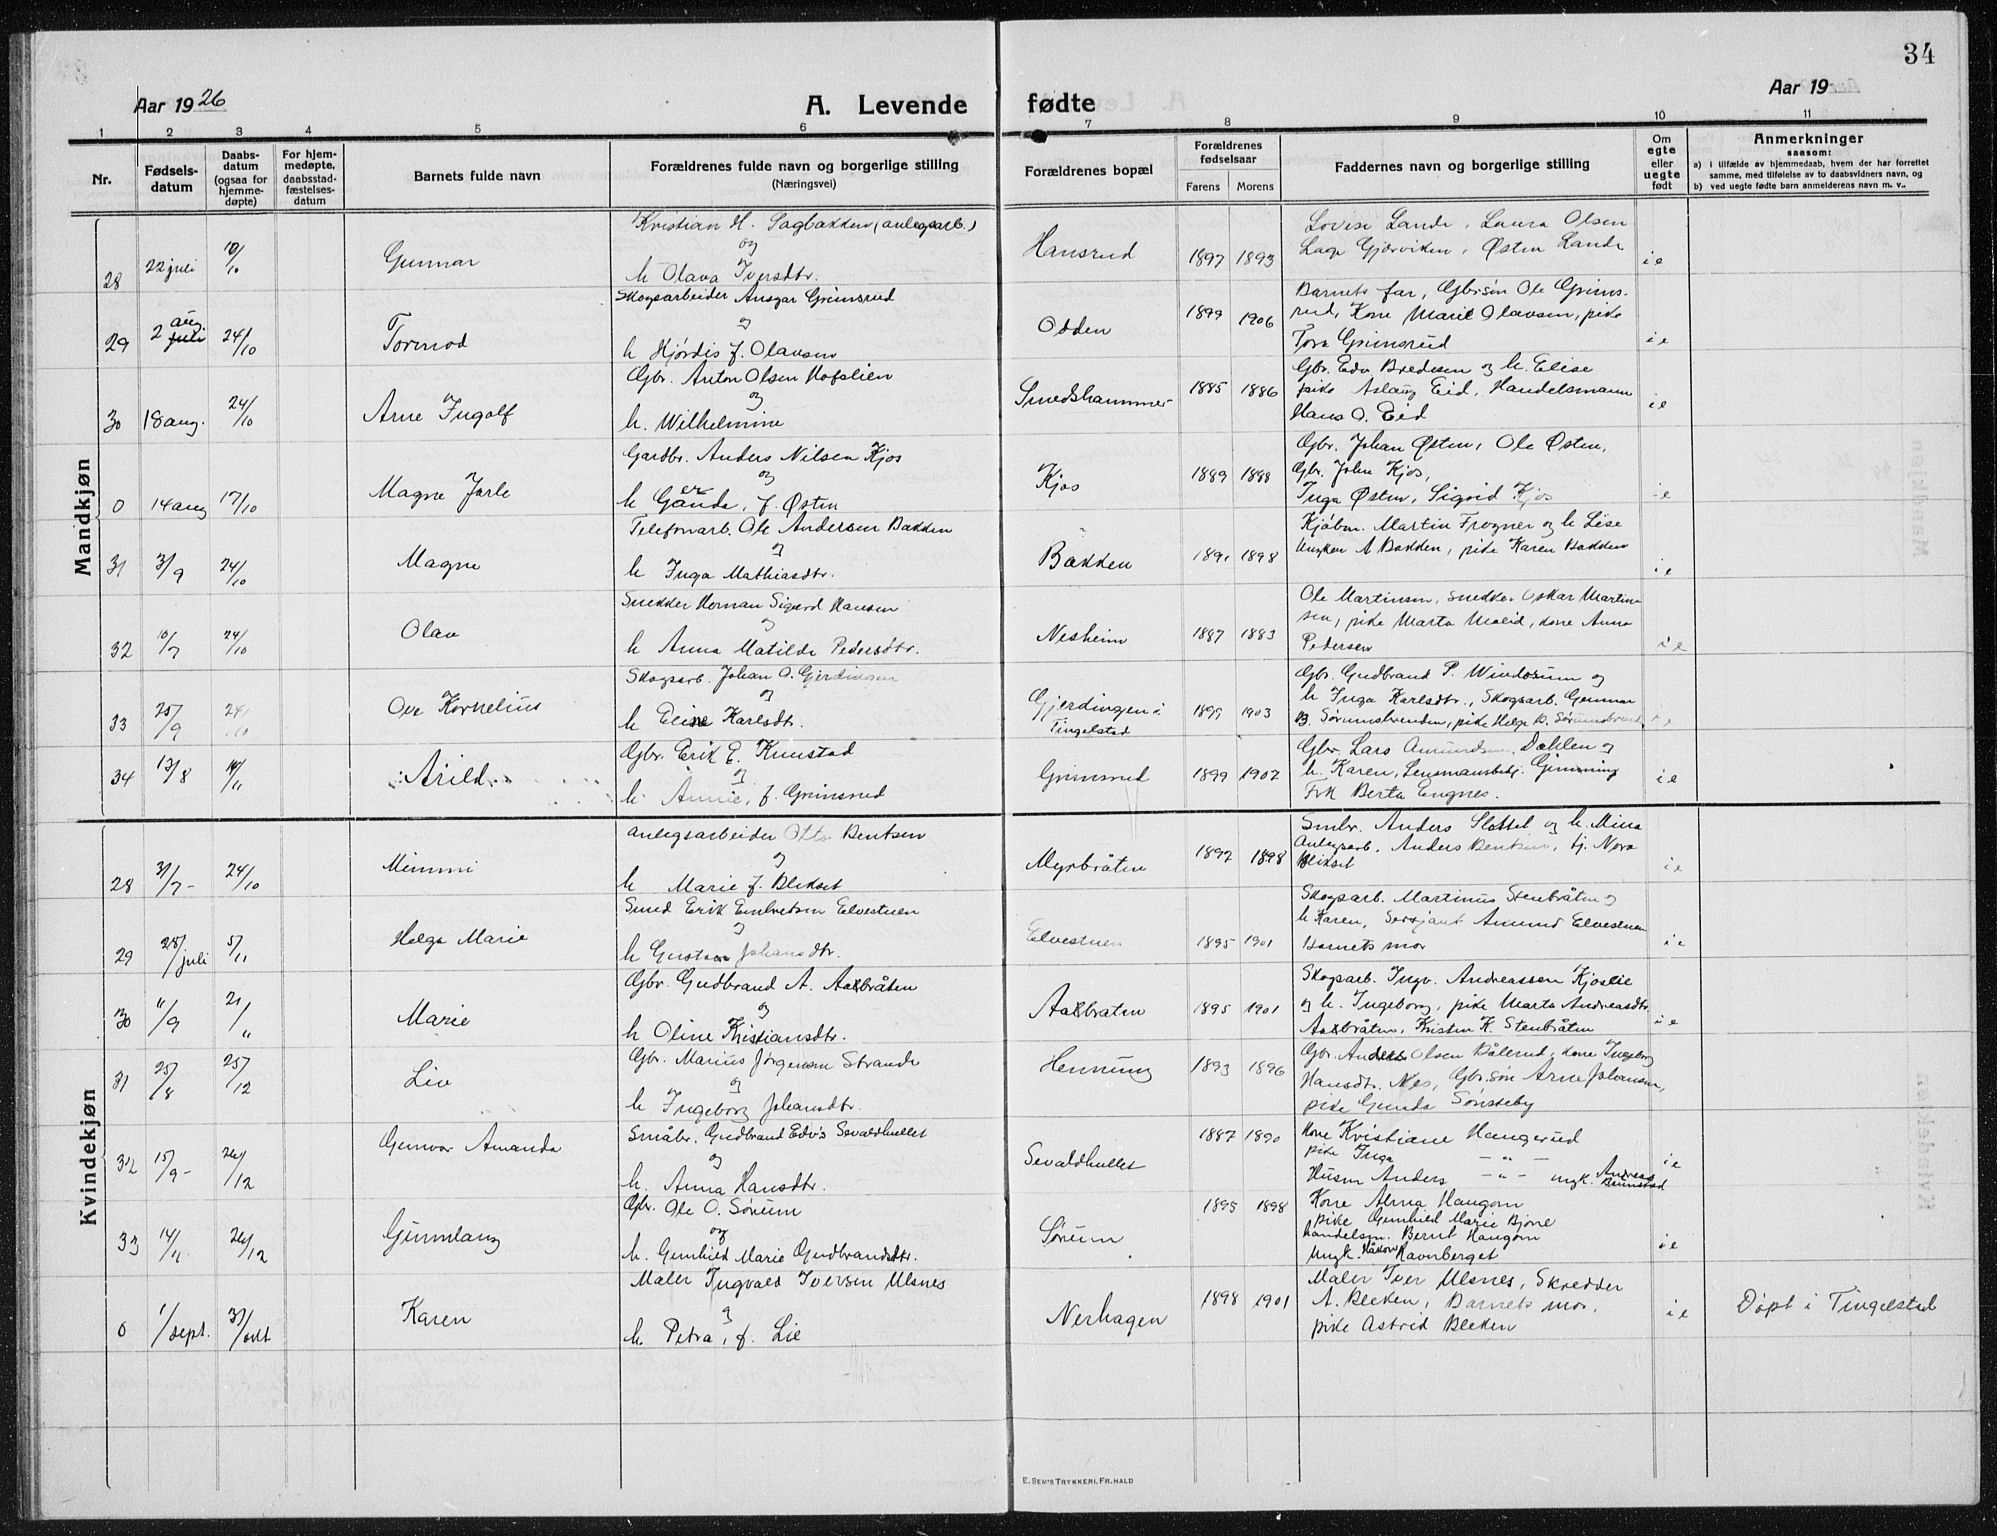 34
Aar 1926
A. Levende fødte
Aar 19
1 2 3 4 5 6 7 8 9 10 11
Nr.
Fødsels-
datum
Daabs-
datum
(ogsaa for
hjemme-
døpte)
For hjem-
medøpte,
daabsstad-
fæstelses-
datum
Barnets fulde navn
Forældrenes fulde navn og borgerlige stilling
(Næringsvei)
Forældrenes bopæl
Forældrenes
fødselsaar
Farens Morens
Faddernes navn og borgerlige stilling
Om
egte
eller
uegte
født
Anmerkninger
saasom:
a) i tilfælde av hjemmedaab, hvem der har forrettet
samme, med tilføielse av to daabsvidners navn, og
b) ved uegte fødte barn anmelderens navn m. v..
Mandkjøn
28 22 juli 10/10 Gunnar
Kristian H. Sagbakken (anlegsarb.)
og
h Olava Iversdtr.
Hansrud 1897 1893
Lovise Lande, Laura Olsen
Gjørviken, Østen Lande
i e
29 2 aug juli 24/10 Tormod
Skogsarbeider Ansgar Grimsrud
og
h Hjørdis f. Olavsen
Odden 1899 1906
Barnets far, Gbr.søn Ole Grims-
rud, Kone Marie Olavsen, pike
Tora Grimsrud
i e
30 18 aug. 24/10 Arne Ingolf
Gbr. Anton Olsen Hofslien
og
h. Wilhelmine
Smedshammer 1885 1886
Gbr. Edv Bredesen og h. Elise
pike Aslaug Eid, Handelsmann
Hans O. Eid
i e
0 14 aug 17/10 Magne Jarle
Gardbr. Anders Nilsen Kjos
og
h Gerda, f. Østen
Kjos 1889 1888
Gbr. Johan Østen, Ole Østen,
Gbr. John Kjos,
Inga Østen, Sigrid Kjos
i e
31 3/9 24/10 Magne
Telefonarb. Ole Andersen Bakken
og
h Inga Mathiasdtr.
Bakken 1891 1898
Kjøbm. Martin Frogner og h Lise
Ungkar A Bakken, pike Karen Bakken
i e
32 10/7 24/10 Olav
Snekker Herman Sigurd Hansen
og
h Anna Matilde Pedersdtr.
Nesheim 1887 1883
Ole Martinsen, snekker Oskar Martin-
sen, pike Marta Molid, kone Anna
Pedersen
i e
33 25/9 24/10 Ove Kornelius
Skogsarb. Johan O. Gjerdingen
og
h Eline Karlsdtr.
Gjerdingen i
Tingelstad
1899 1903
Gbr. Gudbrand P. Windorum og
h Inga Karlsdtr., Skogsarb. Gunnar
B. Sørumsbrenden, pike Helga B. Sørumsbrend.
i e
34 13/8 14/11 Arild
Gbr. Erik E. Knustad
og
h. Annie, f. Grimsrud
Grimsrud 1899 1902
Gbr. Lars Amundsen Dahlen og
h. Karen, Lensmansbetj. Gimming
Frk Berta Engnes.
i e
Kvindekjøn
28 31/7 24/10 Mimmi
Anlegsarbeider Otto Bentsen
og
h Marie f. Blekset
Myrbråten 1892 1898
Smbr. Anders Slottet og h. Mina
Anlegsarb. Anders Bentsen, tj. Nora
Blekset
i e
29 28/juli 5/11 Helga Marie
Smed Erik Embretsen Elvestuen
og
h Gustava Johansdtr.
Elvestuen 1895 1901
Skogsarb. Martinus Stenbråten og
h Karen, Sersjant Amund Elvestuen
Barnets mor
i e
30 11/9 21/11 Marie
Gbr Gudbrand A. Aakbråten
og
h Oline Kristiansdtr.
Aakbraten 1895 1901
Skogsarb. Ingv. Andreassen Kjoslie
og h. Ingeborg, pike Marta Andreasdtr.
Aakbråten, Kristen K. Stenbråten
i e
31 25/8 25/12 Liv
Gbr. Marius Jørgensen Strande
og
h Ingeborg Johansdtr.
Hennung 1893 1896
Gbr. Anders Olsen Bålerud, kone Ingeborg
Hansdtr. Nes, Gbr.søn Arne Johansen,
pike Gunda Sønsteby
32 15/9 26/12 Gunvor Amanda
Småbr. Gudbrand Edv's Sevaldhullet
og
h. Anna Hansdtr.
Sevaldhullet 1887 1890
Kone Kristiane Haugerud
pike Inga — " —
Husm Anders — " — ungk. Andreas Brunstad
i e
33 14/11 26/12 Gunnlaug
Gbr. Ole O. Sørum
og
h. Gunhild Marie Gudbrandsdtr.
Sørum 1895 1898
Kone Alma Haugom
pike Gunhild Marie Bjone
Handelsm. Bernt Haugom
Ungk. Håkon Ravnberget
i e
0 1/sept. 31/okt Karen
Maler Ingvald Iversen Ulsnes
og
h. Petra, f. Lie
Nerhagen 1898 1901
Maler Iver Ulsnes, Skredder
A. Bleken, Barnets mor,
pike Astrid Bleken
i e
Døpt i Tingelstad
E. SEM'S TRYKKERI, FR.HALD